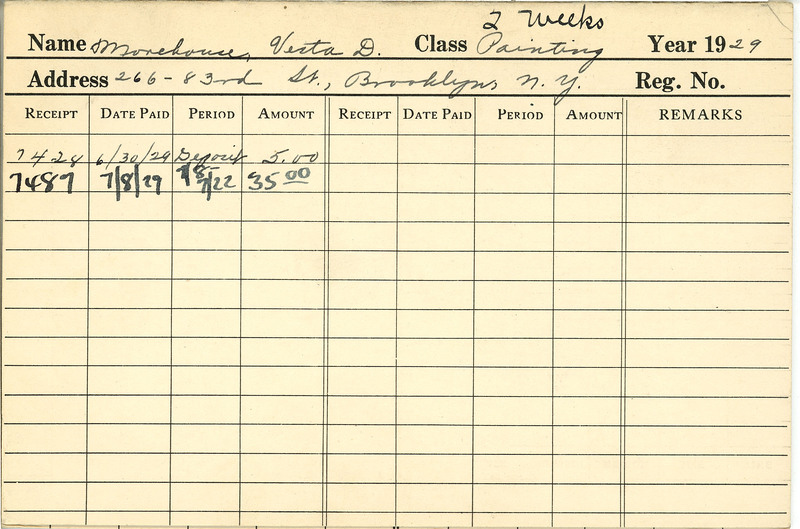 2 Weeks
Name Morehouse, Vesta D. Class Painting Year 1929
Address 266-83rd St., Brooklyn, N.Y. Reg. No.
RECEIPT DATE PAID PERIOD AMOUNT RECEIPT DATE PAID PERIOD AMOUNT REMARKS
7428 6/30/29 Deposit 5.00
7487 7/8/29 7/8-7/22 35 00